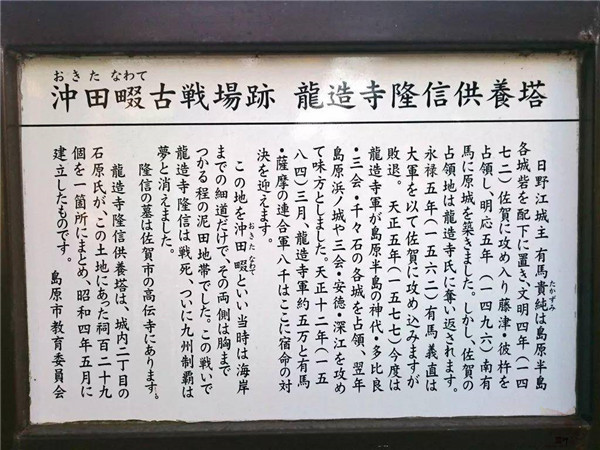 おきた なわて
沖田畷古戦場跡 龍造寺隆信供養塔
日野江城主 有馬貴純は島原半島
たかずみ
各城砦を配下に置き、文明四年（一四
七二）佐賀に攻め入り藤津・彼杵を
占領し、明応五年（一四九六）南有
馬に原城を築きました。しかし、佐賀の
占領地は龍造寺氏に奪い返されます。
永禄五年（一五六二）有馬義直は
大軍を以て佐賀に攻め込みますが
敗退。 天正五年（一五七七）今度は
龍造寺軍が島原半島の神代・多比良
・三会・千々石の各城を占領、翌年
島原浜ノ城や三会・安徳・深江を攻め
て味方としました。天正十二年（一五
八四）三月、龍造寺軍約五万と有馬
・薩摩の連合軍八千はここに宿命の対
決を迎えます。
この地を沖田畷といい、当時は海岸
おきた なわて
までの細道だけで、その両側は胸まで
つかる程の泥田地帯でした。この戦いで
龍造寺隆信は戦死、ついに九州制覇は
夢と消えました。
隆信の墓は佐賀市の高伝寺にあります。
龍造寺隆信供養塔は、城内二丁目の
石原氏が、この土地にあった祠百二十九
個を一箇所にまとめ、昭和四年五月に
建立したものです。 島原市教育委員会